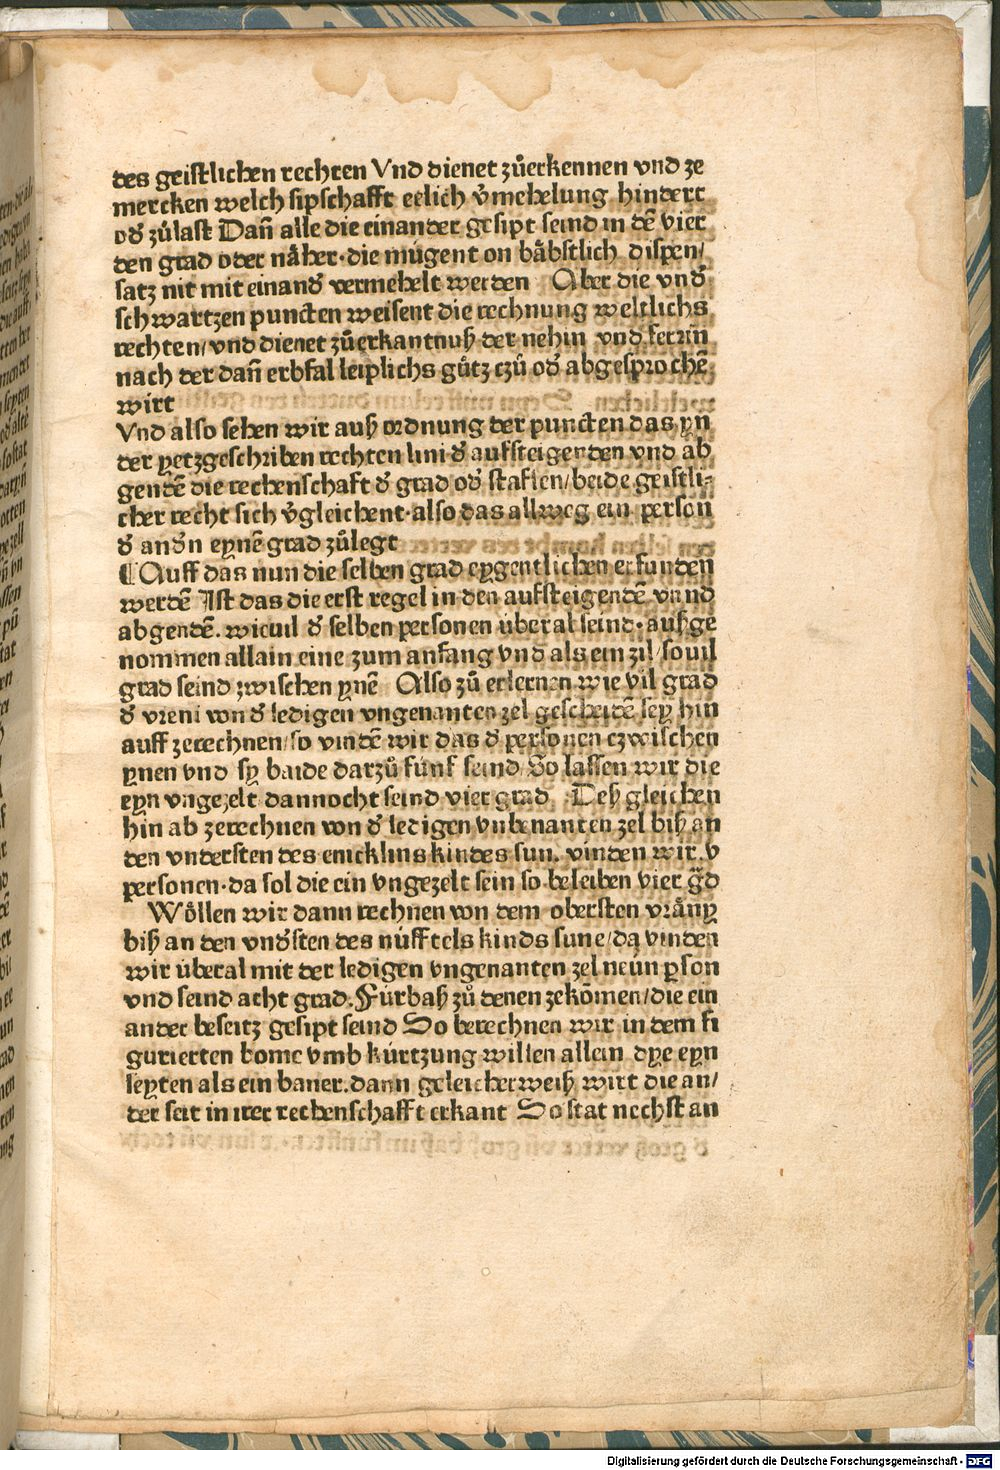 des geistlichen rechten Vnd dienet zůerkennen vnd ze
mercken welch sipschafft eelich v̉mehelung hindert
od̉ zůlast Dañ alle die einander gesipt seind in dẽ vier
den grad oder nåher·die mügent on båbstlich dispen/
satz nit mit einand̉ vermehelt werden Aber die vnd̉
schwartzen puncten weisent die rechnung weltlichs
rechten/vnd dienet zůerkantnuß der nehin vnd ferriñ
nach der dañ erbfal leiplichs gůtz czů od̉ abgesprochẽ
wirt
Vnd also sehen wir auß ordnung der puncten das yn
der yetzgeschriben rechten lini d̉ aufsteigenden vnd ab
gendẽ die rechenschaft d̉ grad od̉ staflen/beide geistli⸗
cher recht sich v̉gleichent·also das allweg ein person
d̉ and̉n eynẽ grad zůlegt
¶Auff das nun die selben grad eygentlichen erfunden
werdẽ Ist das die erst regel in den aufsteigendẽ vnnd
abgendẽ. wieuil d̉ selben personen überal seind·außge
nommen allain eine zum anfang vnd als ein zil/souil
grad seind zwischen ynẽ Also zů erlernen wie vil grad
d̉ vreni von d̉ ledigen vngenanten zel gescheidẽ sey hin
auff zerechnen/so vindẽ wir das d̉ personen czwischen
ynen vnd sy baide darzů fünf seind So lassen wir die
eyn vngezelt dannocht seind vier grad Deß gleichen
hin ab zerechnen von d̉ ledigen vnbenanten zel biß an
den vndersten des enicklins kindes sun. vinden wir.v
personen·da sol die ein vngezelt sein so beleiben vier g̃d
Wöllen wir dann rechnen von dem obersten vråny
biß an den vnd̉sten des nüfftels kinds sune/da vinden
wir überal mit der ledigen vngenanten zel neün ꝑson
vnd seind acht grad.Fürbaß zů denen zekõmen/die ein
ander beseitz gesipt seind So berechnen wir in dem fi
gurierten bome vmb kürtzung willen allein dye eyn
seyten als ein baner.dann geleicher weiß wirt die an/
der seit in irer rechenschafft erkant So stat nechst an
Digitalisierung gefördert durch die Deutsche Forschungsgemeinschaft - DFG